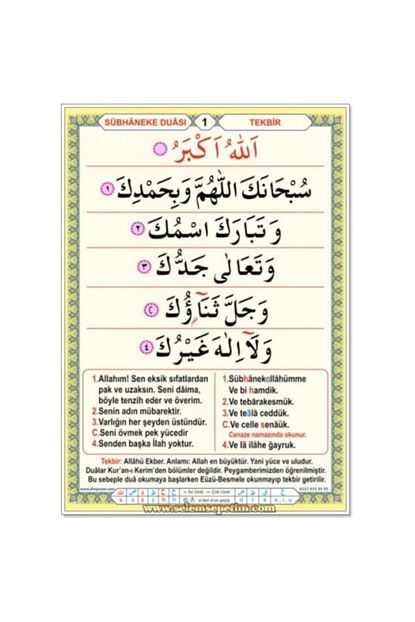 SÜBHÂNEKE DUÂSI 1 TEKBİR
اَللّٰهُ اَكْبَرُ
سُبْحَانَكَ اللّٰهُمَّ وَبِحَمْدِكَ ١
وَتَبَارَكَ اسْمُكَ ٢
وَتَعَالٰى جَدُّكَ ٣
وَجَلَّ ثَنَٓاؤُكَ C
وَلَٓا اِلٰهَ غَيْرُكَ ٤
1.Allahım! Sen eksik sıfatlardan
pak ve uzaksın. Seni dâima,
böyle tenzih eder ve överim.
2.Senin adın mübarektir.
3.Varlığın her şeyden üstündür.
C.Seni övmek pek yücedir
4.Senden başka İlah yoktur.
1.Sübhânekellâhümme
Ve bi hamdik.
2.Ve tebârakesmük.
3.Ve teâlâ ceddük.
C.Ve celle senâük.
Cenaze namazında okunur.
4.Ve lâ ilâhe ğayruk.
Tekbir: Allâhü Ekber. Anlamı: Allah en büyüktür. Yani yüce ve uludur.
Duâlar Kur'an-ı Kerim'den bölümler değildir. Peygamberimizden öğrenilmiştir.
Bu sebeple duâ okumaya başlarken Eûzü-Besmele okunmayıp tekbir getirilir.
www.selemsepetim.com